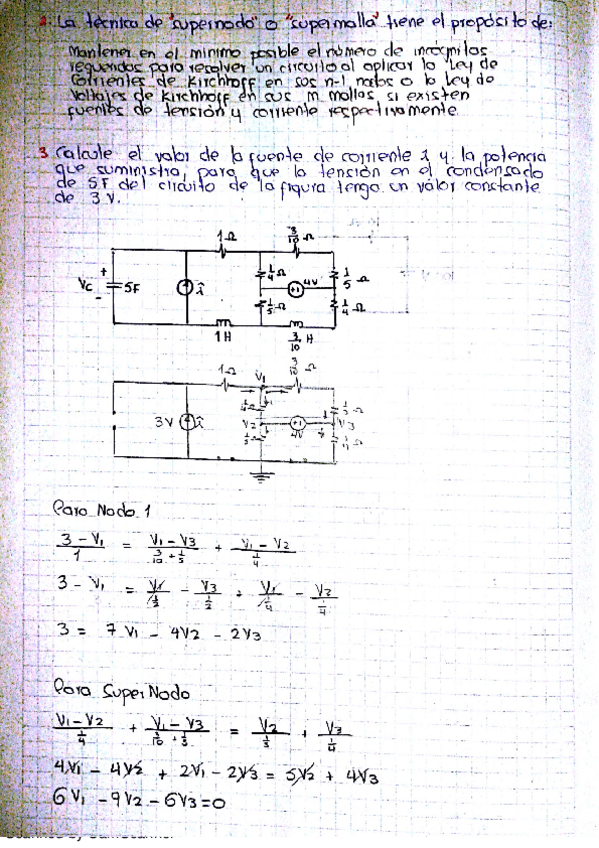 2. La técnica de "supernodo" o "supermalla" tiene el propósito de:
Mantener en el mínimo posible el número de incógnitas
requeridas para resolver un circuito al aplicar la Ley de
Corrientes de Kirchhoff en sus n-1 nodos o la Ley de
Voltajes de Kirchhoff en sus m mallas, si existen
fuentes de tensión y corriente respectivamente.
3 Calcule el valor de la fuente de corriente i y la potencia
que suministra, para que la tensión en el condensado
de 5F del circuito de la figura tenga un valor constante
de 3 V.
1Ω 3/10 Ω
Vc + - 5F i 1/4 Ω 4V 1/5 Ω
1/5 Ω 1/4 Ω
1H 3/10 H
1Ω V1 3/10 Ω
3V i 1/4 Ω V2 4V V3 1/5 Ω
1/5 Ω 1/4 Ω
Para Nodo 1
(3 - V1)/1 = (V1 - V3)/(3/10 + 1/5) + (V1 - V2)/(1/4)
3 - V1 = V1/(1/2) - V3/(1/2) + V1/(1/4) - V2/(1/4)
3 = 7V1 - 4V2 - 2V3
Para SuperNodo
(V1 - V2)/(1/4) + (V1 - V3)/(3/10 + 1/5) = V2/(1/5) + V3/(1/4)
4V1 - 4V2 + 2V1 - 2V3 = 5V2 + 4V3
6V1 - 9V2 - 6V3 = 0